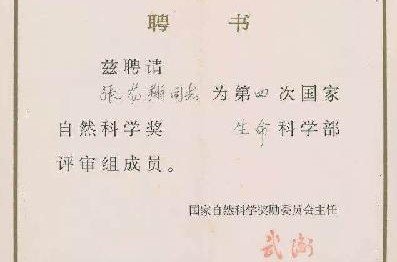 聘书
兹聘请
張翔同志为第四次国家
自然科学奖 生命科学部
评审组成员。
国家自然科学奖励委员会主任
武衡